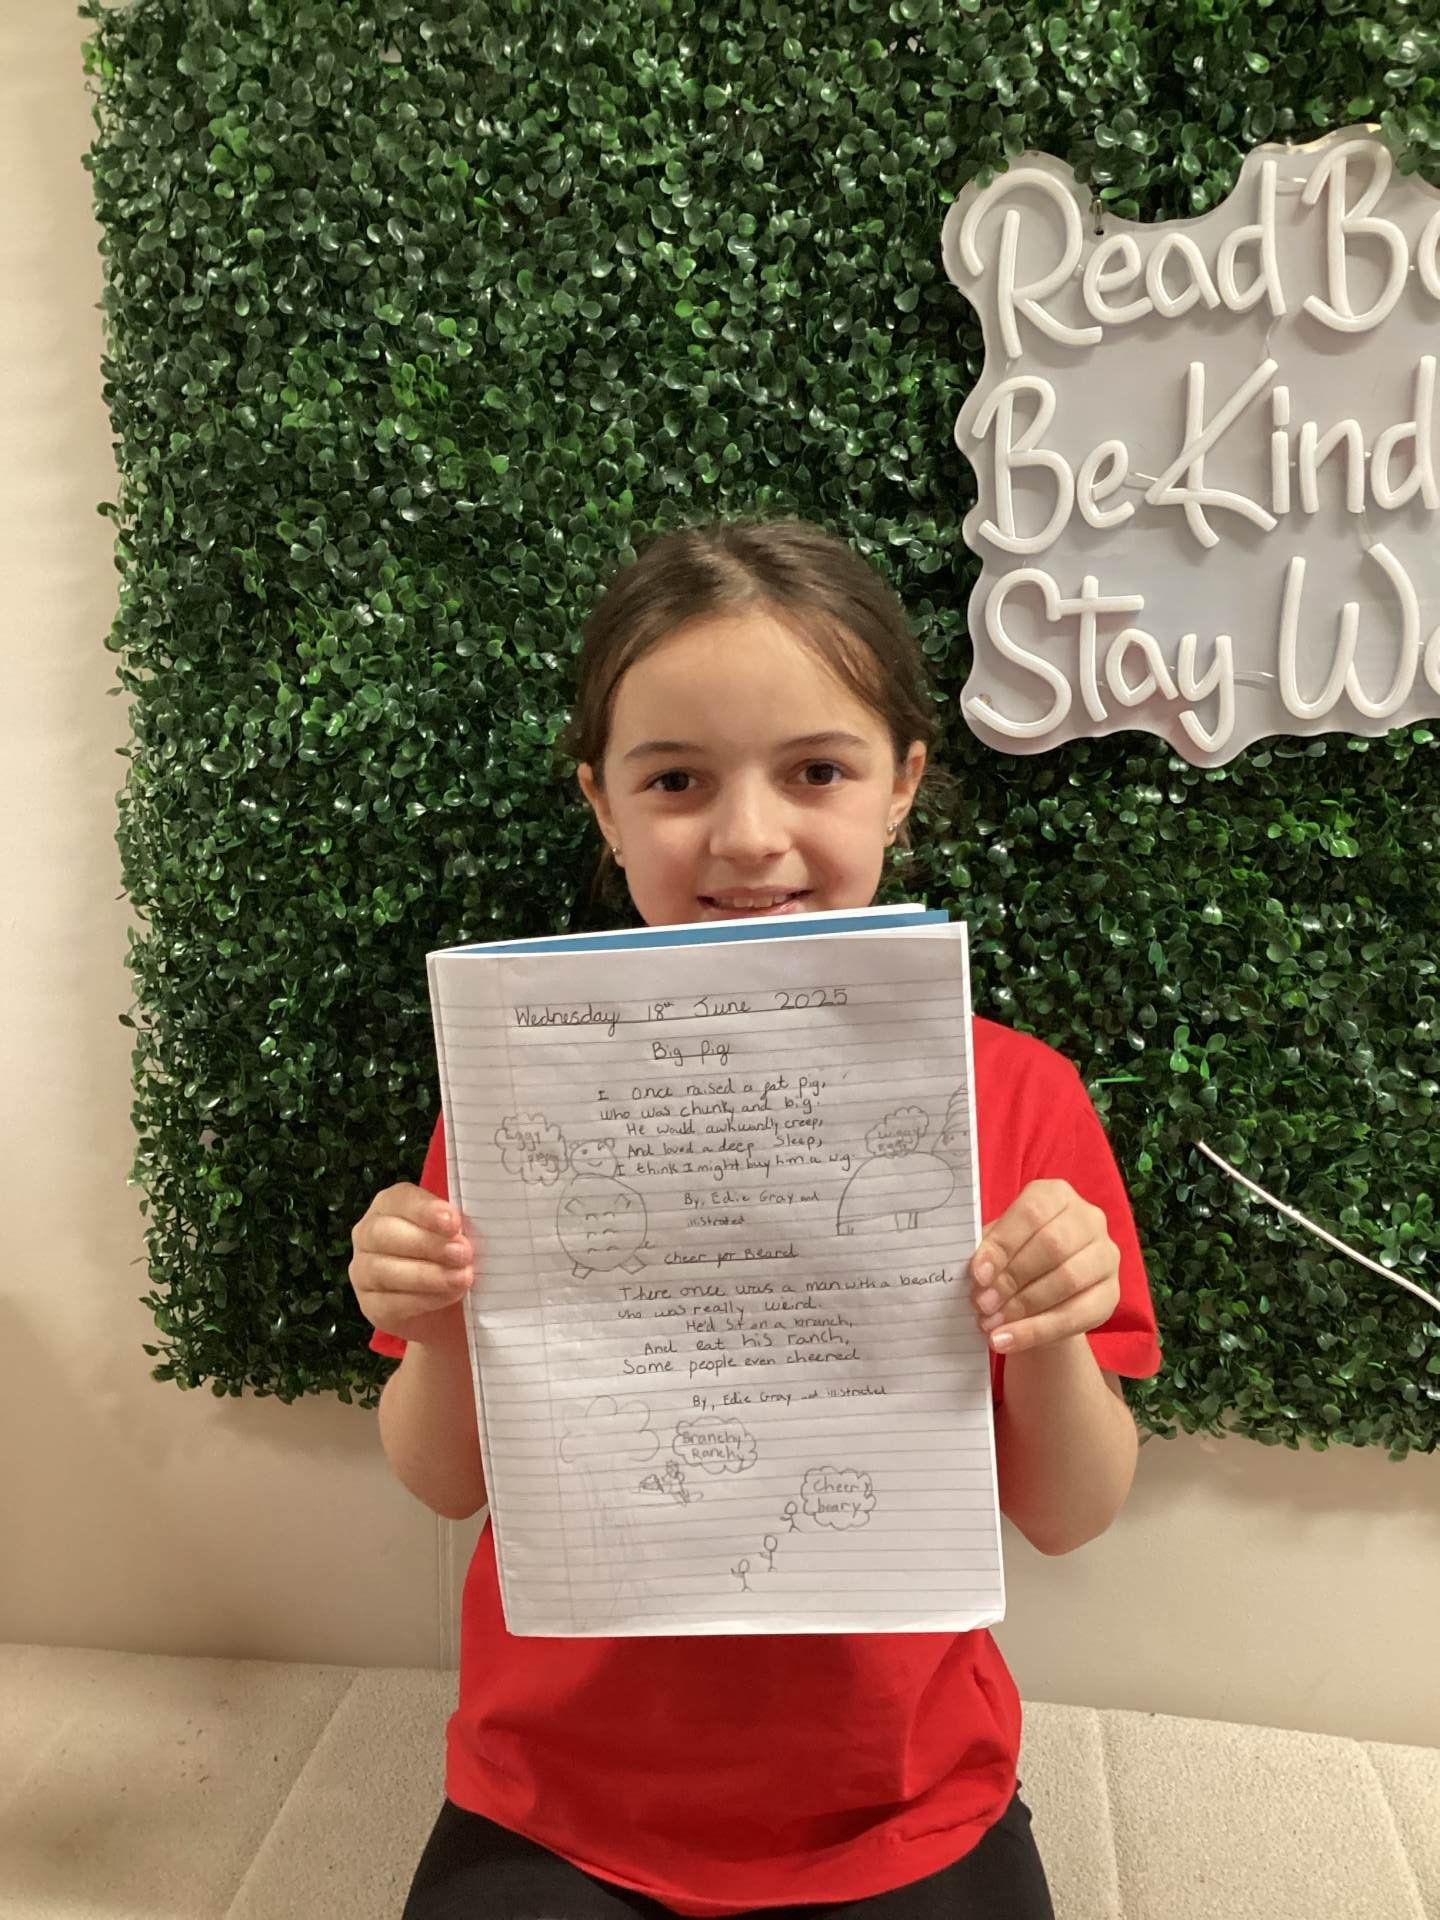 Read Bo
Be Kind
Stay We
Wednesday 18th June 2025
Big Pig
I once raised a fat pig,
who was chunky and big.
He would awkwardly creep,
And loved a deep sleep,
I think I might buy him a wig.
By, Edie Gray and
illistrated
Cheer for Beard
There once was a man with a beard,
who was really weird.
He'd sit on a branch,
And eat his ranch,
Some people even cheered
By, Edie Gray and illistrated
Branchy
Ranchy
Cheery
beary